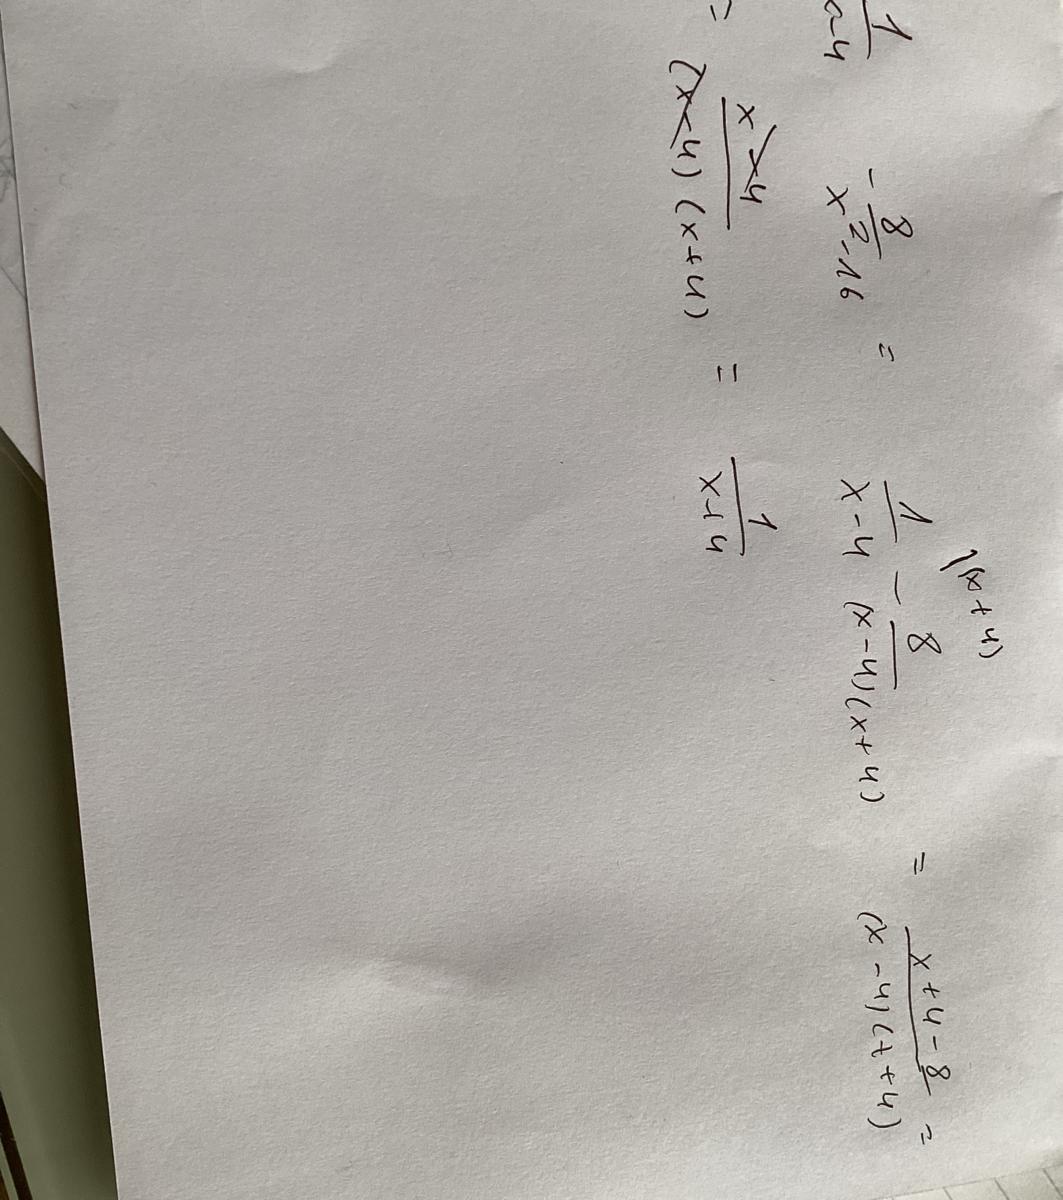 1/a-4 - 8/x²-16 = 1\(x+4)/x-4 - 8/(x-4)(x+4) = x+4-8/(x-4)(x+4) =
= x-4/(x-4)(x+4) = 1/x+4